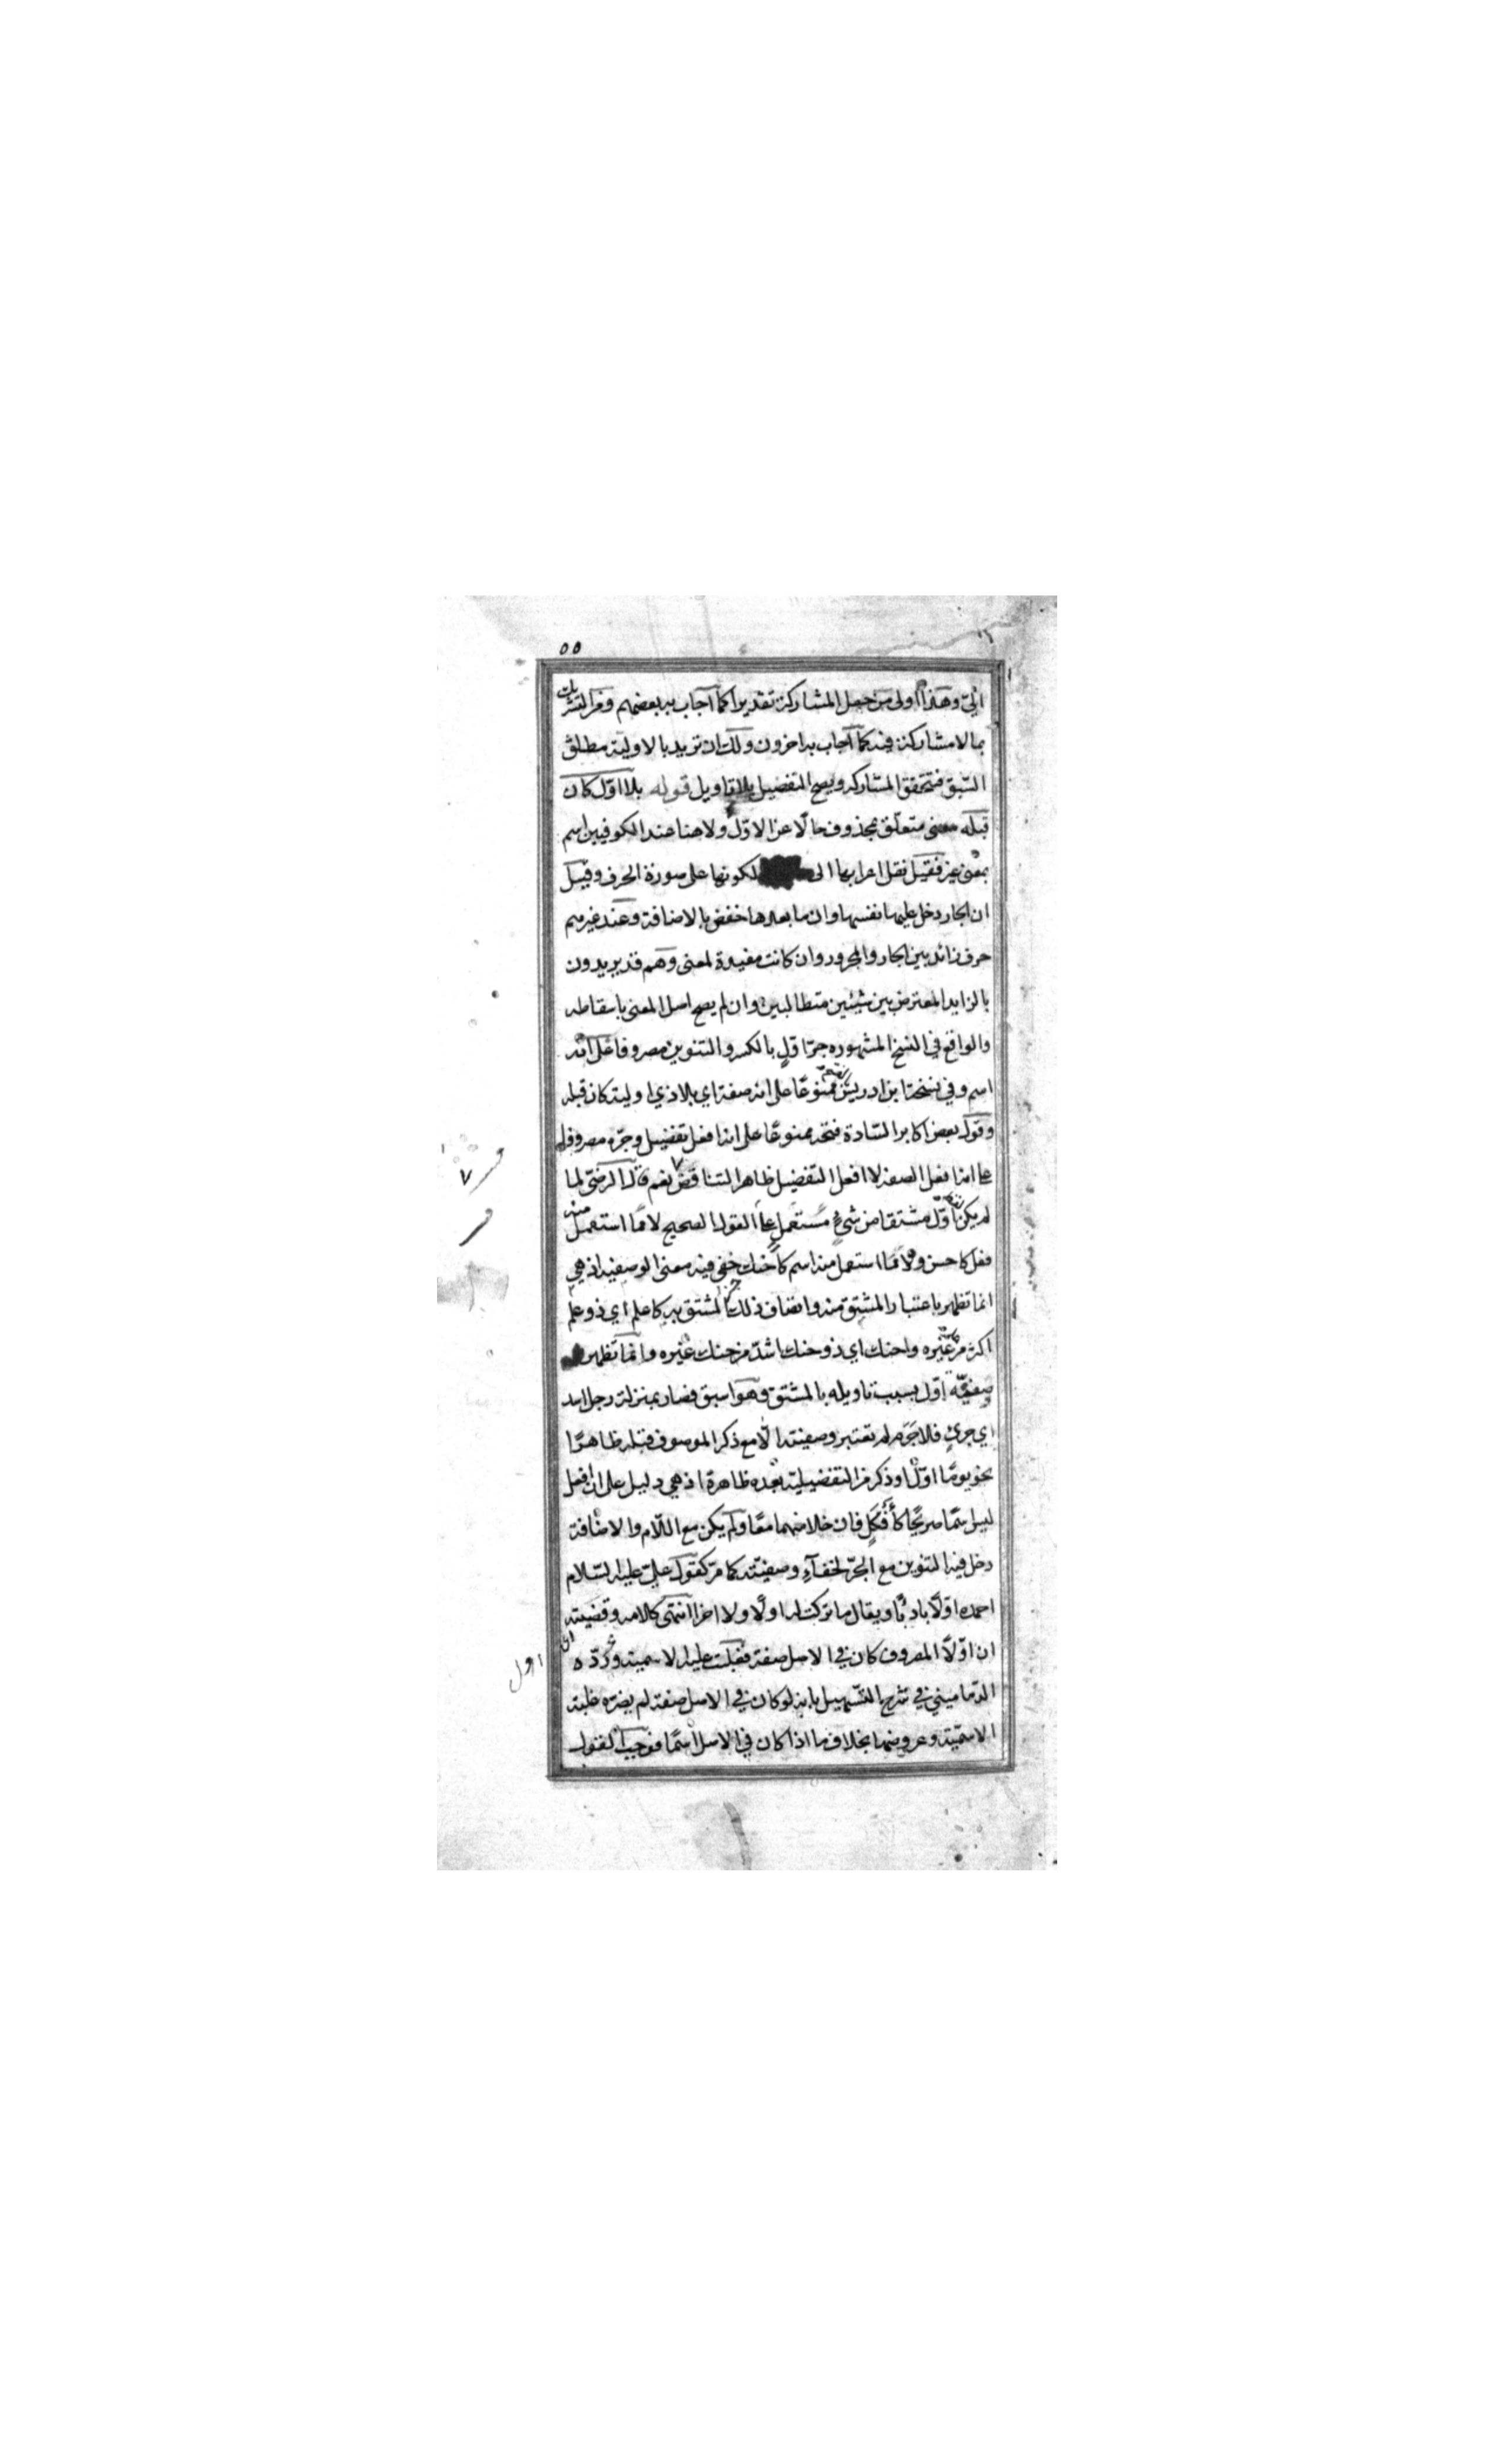 ٥٥
اليّ وهذا اولى من جعل المشاركة تقديرا كما آجاب به بعضهم ومن التشريك
بما لا مشاركة فيه كما آجاب به اخرون ولك ان تريد بالاولية مطلق
السّبق فتحقق المشاركه ويصح التفضيل بلا تاويل قوله بلا اوّل كان
قبله معنى متعلّق بمحذوف حالًا عن الاوّل ولا هنا عند الكوفيين اسم
بمعنى غير فقيل نقل اعرابها الى لكونها على صورة الحرف وقيل
ان الجار دخل عليها نفسها وان ما بعدها خفض بالاضافة وعند غيرهم
حرف زائد بين الجار والمجرور وان كانت مفيدة لمعنى وهم قد يريدون
بالزايد المعترض بين شيئين متطالبين وان لم يصح اصل المعنى باسقاطه
والواقع في النسخ المشهوره جرّ اوّلٍ بالكسر والتنوين مصروفا على انّه
اسم وفي نسخة ابن ادريس ممنوعًا على انه صفة اي بلا ذي اولية كان قبله
وقول بعض اكابر السّادة فتحه ممنوعًا على انه افعل تفضيل وجرّه مصروفا
على انه افعل الصفة لا افعل التفضيل ظاهر التناقض نعم قال الرضىّ لما
لم يكن اوّل مشتقا من شئٍ مستعملٍ على القول الصحيح لا ممّا استعمل منه
فعل كاحسن ولا ممّا استعمل منه اسم كأحنك خفى فيه معنى الوصفية اذ هي
انما تظهر باعتبار المشتق منه واتصاف ذلك المشتق به كاعلم اي ذو علم
اكثر من غيره واحنك اي ذو حنك اشدّ من حنك غيره وانما تظهر
وصفيّة اوّل بسبب تاويله بالمشتق وهو اسبق فصار بمنزلة رجل اسد
اي جرئٍ فلا جرم لم تعتبر وصفيته الّا مع ذكر الموصوف قبله ظاهرًا
نحو يومًا اوّل او ذكر من التفضيلية بعده ظاهرة اذ هي دليل على ان افعل
ليس اسمًا صريحًا كأفكَلٍ فان خلا منهما معًا ولم يكن مع اللّام والاضافة
دخل فيه التنوين مع الجرّ لخفآءِ وصفيّته كما مرّ كقول عليّ عليه السّلام
احمده اوّلًا بادئًا ويقال ما تركت له اولًا ولا اخرا انتهى كلامه وقضيته
ان اوّلًا المصروف كان في الاصل صفة فغلبت عليه الاسمية وردّه
الدّماميني في شرح التّسهيل بانه لو كان في الاصل صفة لم يضرّه غلبة
الاسميّة وعروضها بخلاف ما اذا كان في الاصل اسمًا فوجب القول
اول